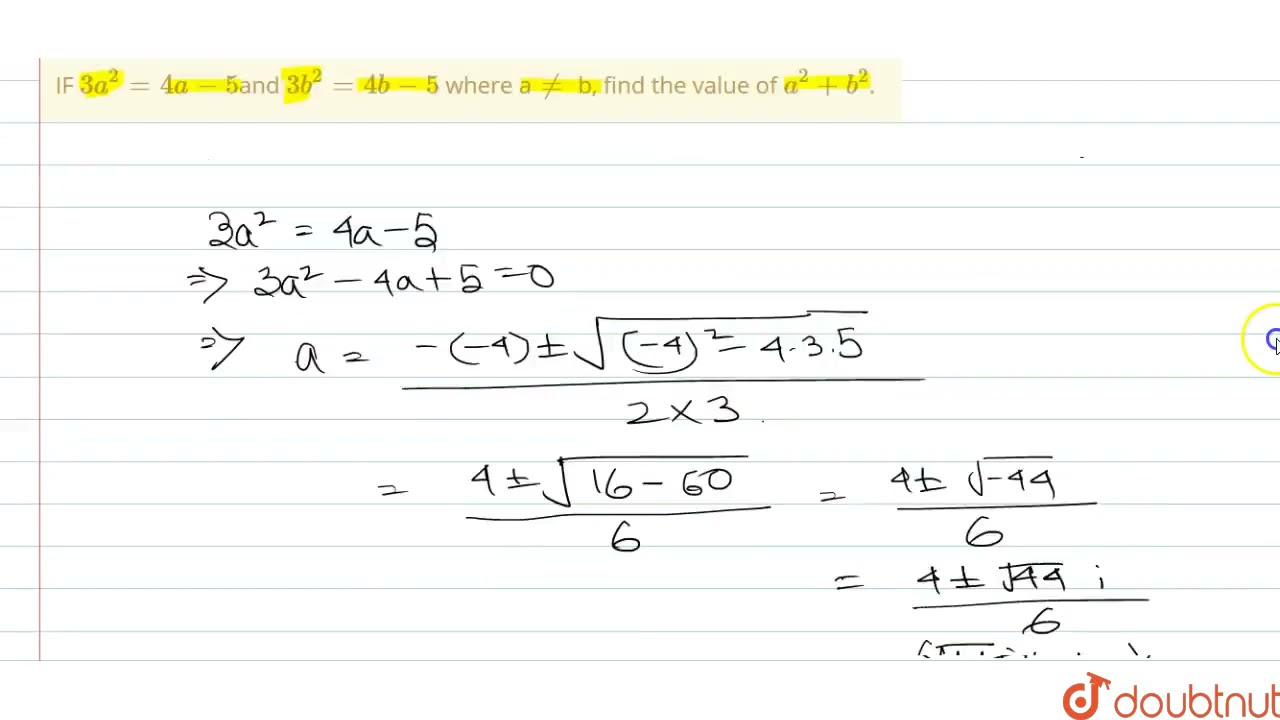 IF 3a² = 4a − 5and 3b² = 4b − 5 where a ≠ b, find the value of a² + b².
3a² = 4a − 5
⇒ 3a² − 4a + 5 = 0
⇒ a = (-(-4) ± √((-4)² − 4·3·5)) / (2 × 3)
= (4 ± √(16 − 60)) / 6 = (4 ± √(-44)) / 6
= (4 ± √44 i) / 6
doubtnut